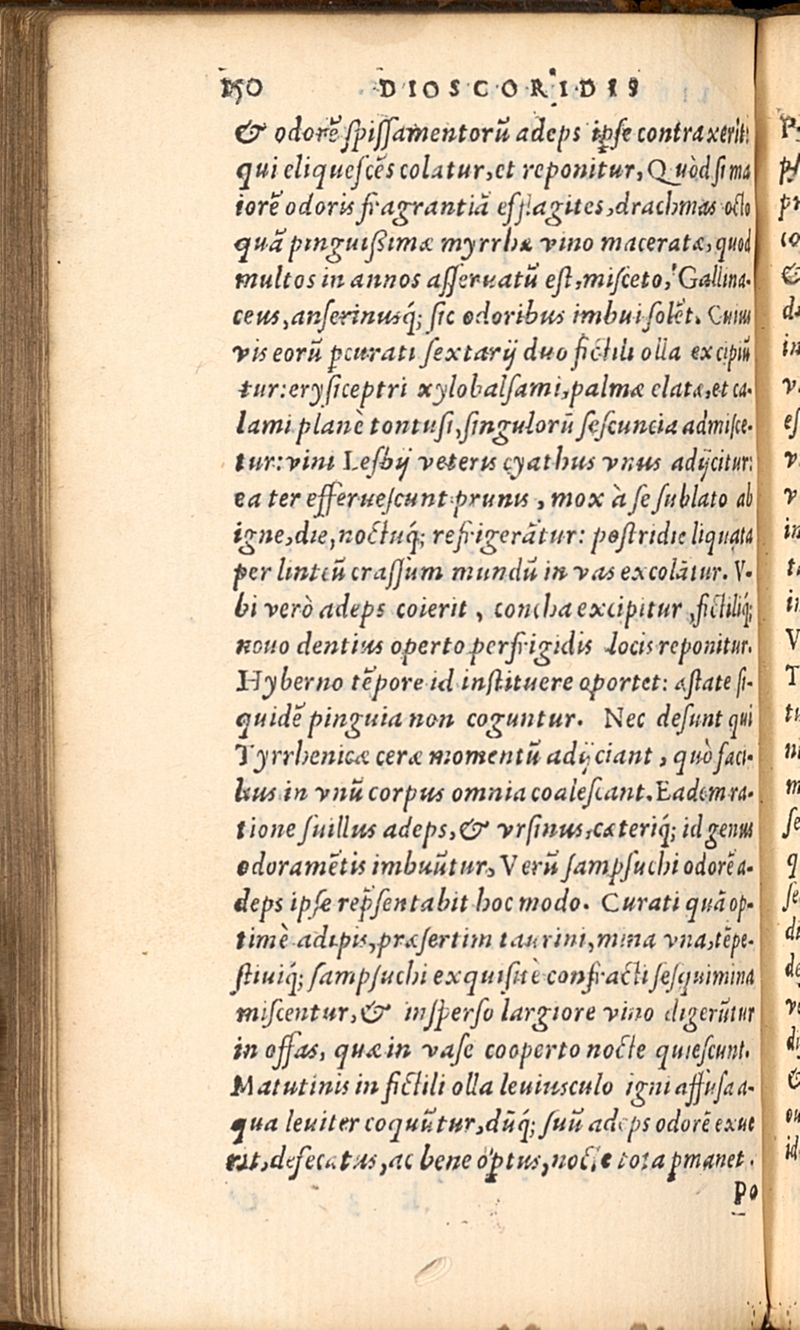 150 DIOSCORIDIS
& odorē ſpiſſamentorū adeps ipſe contraxerit:
qui eliqueſcēs colatur, et reponitur, Quòd ſi ma
iorē odoris fragrantiā efflagites, drachmas octo
quā pinguiſſimæ myrrhæ vino maceratæ, quod
multos in annos aſſeruatū eſt, miſceto, Gallina-
ceus, anſerinusq́; ſic odoribus imbui ſolēt. Cuius
vis eorū ꝑcurati ſextarij duo fictili olla excipiū
tur: eryſiceptri xylobalſami, palmæ elatæ, et ca-
lami planè tontuſi, ſingulorū ſeſcuncia admiſce-
tur: vini Leſbij veteris cyathus vnus adijcitur:
ea ter efferueſcunt prunis, mox à ſe ſublato ab
igne, die, noctuq́; refrigerātur: poſtridie liquata
per linteū craſſum mundū in vas excolātur. V-
bi verò adeps coierit, concha excipitur, fictiliq́;
nouo dentius operto perfrigidis locis reponitur.
Hyberno tēpore id inſtituere oportet: æſtate ſi-
quidē pinguia non coguntur. Nec deſunt qui
Tyrrhenicæ ceræ momentū adijciant, quò faci-
lius in vnū corpus omnia coaleſcant. Eadem ra-
tione ſuillus adeps, & vrſinus, cæteriq́; id genus
odoramētis imbuūtur, Verū ſampſuchi odorē a-
deps ipſe rep̄ſentabit hoc modo. Curati quā op-
timè adipis, præſertim taurini, mina vna, tēpe-
ſtiuiq́; ſampſuchi exquiſitè confracti ſeſquimina
miſcentur, & inſperſo largiore vino digerūtur
in offas, quæ in vaſe cooperto nocte quieſcunt.
Matutinis in fictili olla leuiusculo igni affuſa a-
qua leuiter coquūtur, dūq́; ſuū adeps odorē exue
rit, defecatus, ac bene oꝑtus, nocte tota ꝑmanet.
Po